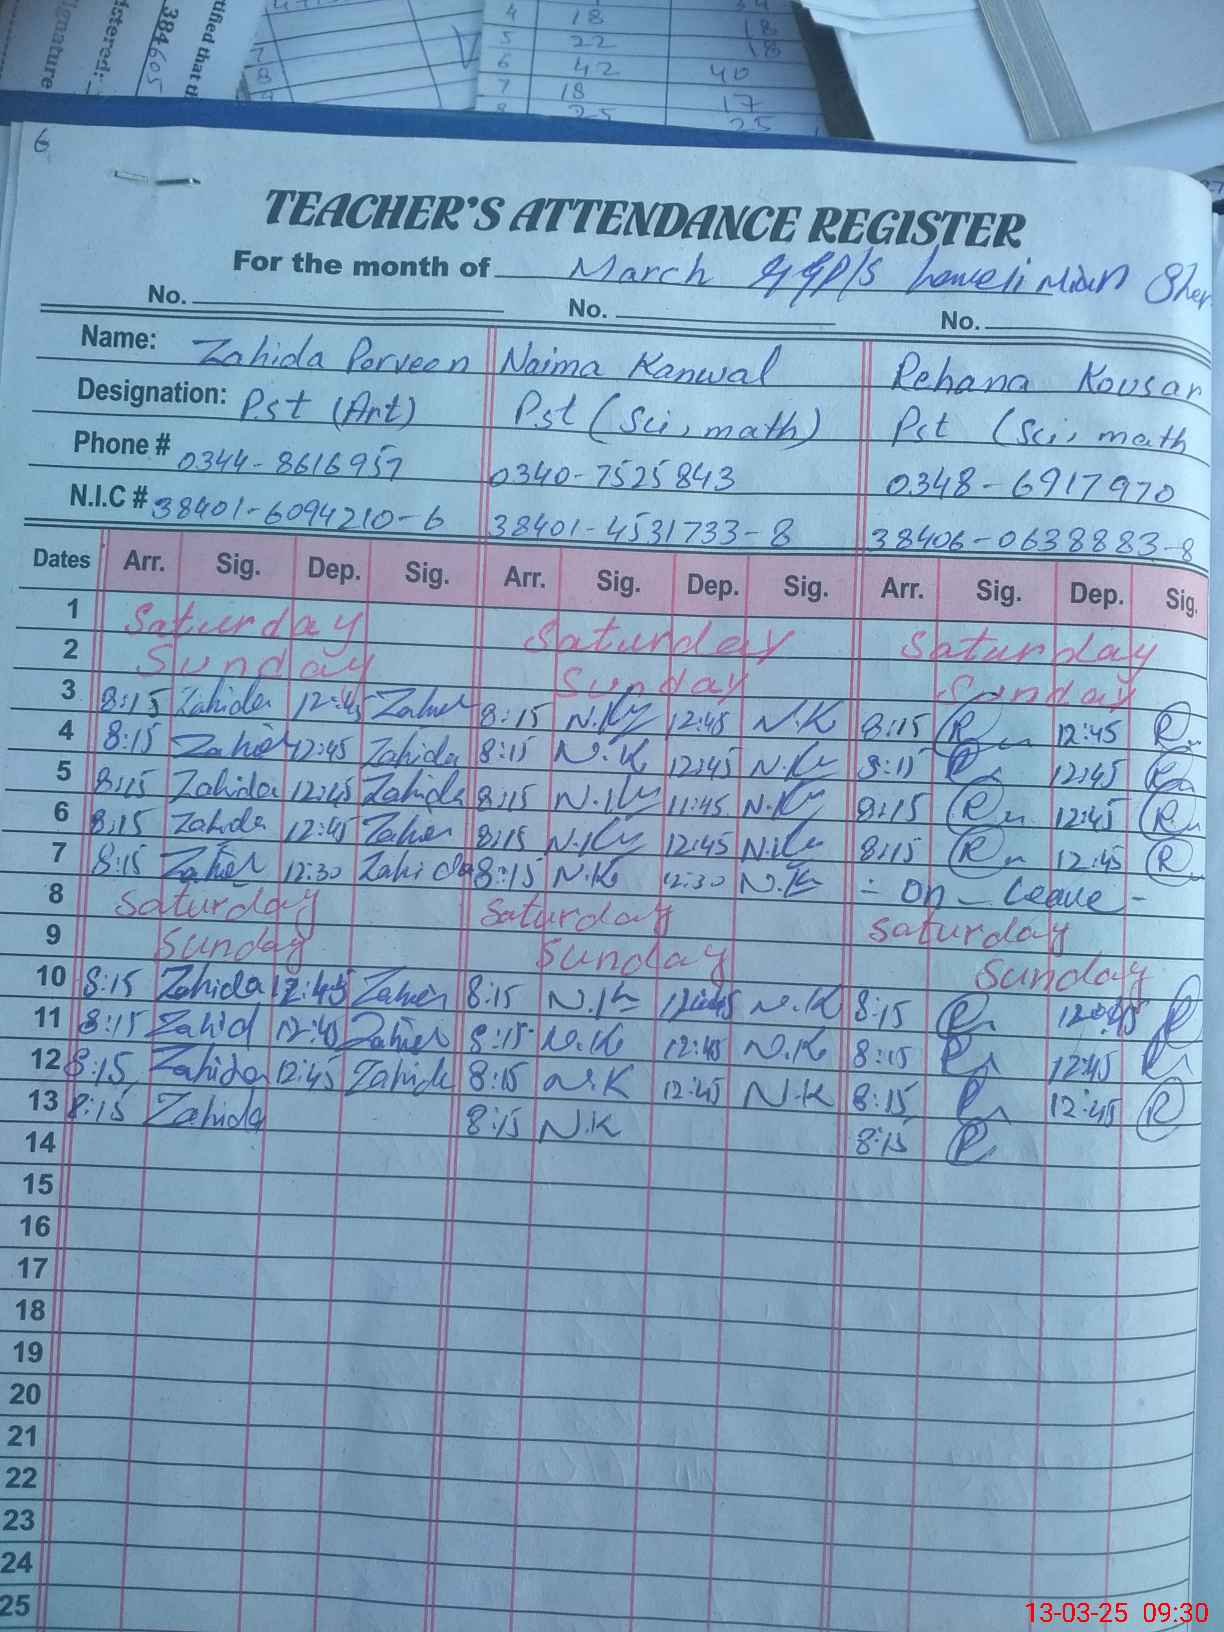 gnature
istered:
384605
rtified that th
7
8
4 18
5 22 18
6 42 40
7 18 17
8 25 25
6
TEACHER'S ATTENDANCE REGISTER
For the month of March GGP/S Mian Sher
No. No. No.
Name: Zahida Parveen Naima Kanwal Rehana Kousar
Designation: Pst (Art) Pst (Sci, math) Pst (Sci, math
Phone # 0344-8616957 0340-7525843 0348-6917970
N.I.C # 38401-6094210-6 38401-4531733-8 38406-0638883-8
Dates Arr. Sig. Dep. Sig. Arr. Sig. Dep. Sig. Arr. Sig. Dep. Sig.
1 Saturday Saturday Saturday
2 Sunday Sunday Sunday
3 8:15 Zahida 12:45 8:15 N.K 12:45 N.K 8:15 R 12:45 R
4 8:15 12:45 Zahida 8:15 N.K 12:45 N.K 8:15 R 12:45 R
5 8:15 Zahida 12:45 Zahida 8:15 N.K 11:45 N.K 8:15 R 12:45 R
6 8:15 Zahida 12:45 8:15 N.K 12:45 N.K 8:15 R 12:45 R
7 8:15 12:30 Zahida 8:15 N.K 12:30 N.K - on - Leave -
8 Saturday Saturday Saturday
9 Sunday Sunday Sunday
10 8:15 Zahida 12:45 8:15 N.K 12:45 N.K 8:15 R 12:45 R
11 8:15 Zahid 12:45 8:15 N.K 12:45 N.K 8:15 R 12:45 R
12 8:15 Zahida 12:45 Zahida 8:15 N.K 12:45 N.K 8:15 R 12:45 R
13 8:15 Zahida 8:15 N.K 8:15 R
14
15
16
17
18
19
20
21
22
23
24
25
13-03-25 09:30